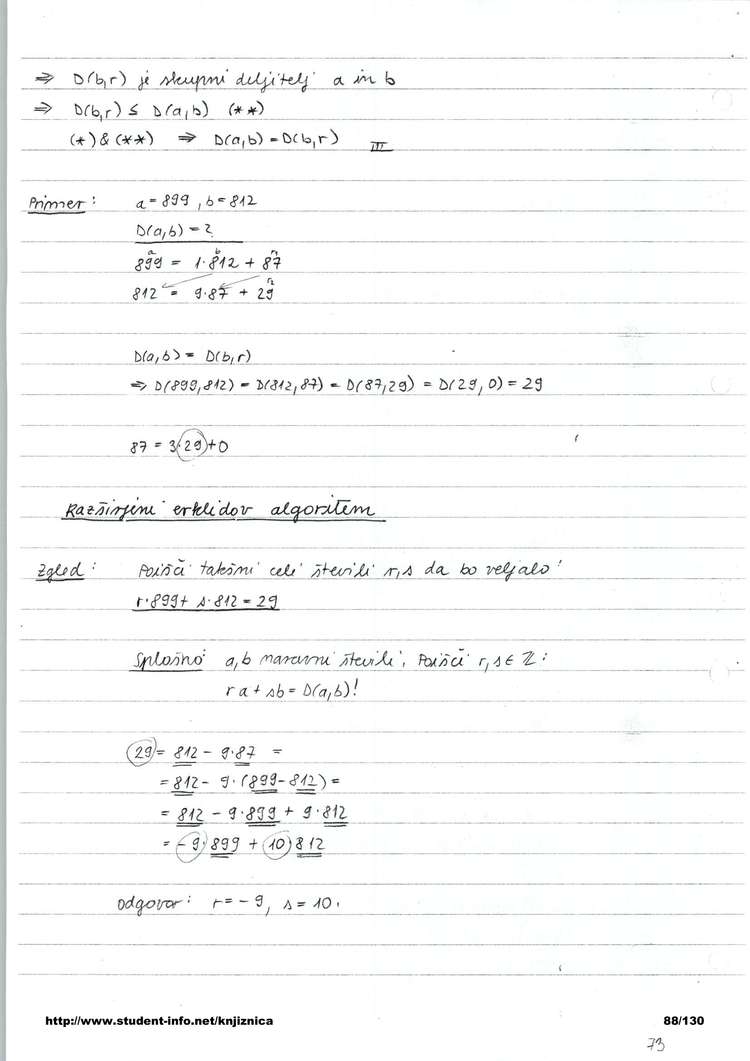 ⇒ D(b,r) je skupni deljitelj a in b
⇒ D(b,r) ≤ D(a,b) (**)
(*) & (**) ⇒ D(a,b) = D(b,r)
Primer: a = 899, b = 812
D(a,b) = ?
a b r₁
899 = 1·812 + 87
r₂
812 = 9·87 + 29
D(a,b) = D(b,r)
⇒ D(899,812) = D(812,87) = D(87,29) = D(29,0) = 29
87 = 3·29 + 0
Razširjeni evklidov algoritem
Zgled: Poišči takšni celi števili r,s da bo veljalo:
r·899 + s·812 = 29
Splošno: a,b naravni števili, Poišči r,s ∈ Z:
ra + sb = D(a,b)!
29 = 812 - 9·87 =
= 812 - 9·(899-812) =
= 812 - 9·899 + 9·812
= -9·899 + 10·812
odgovor: r = -9, s = 10.
http://www.student-info.net/knjiznica 88/130
73